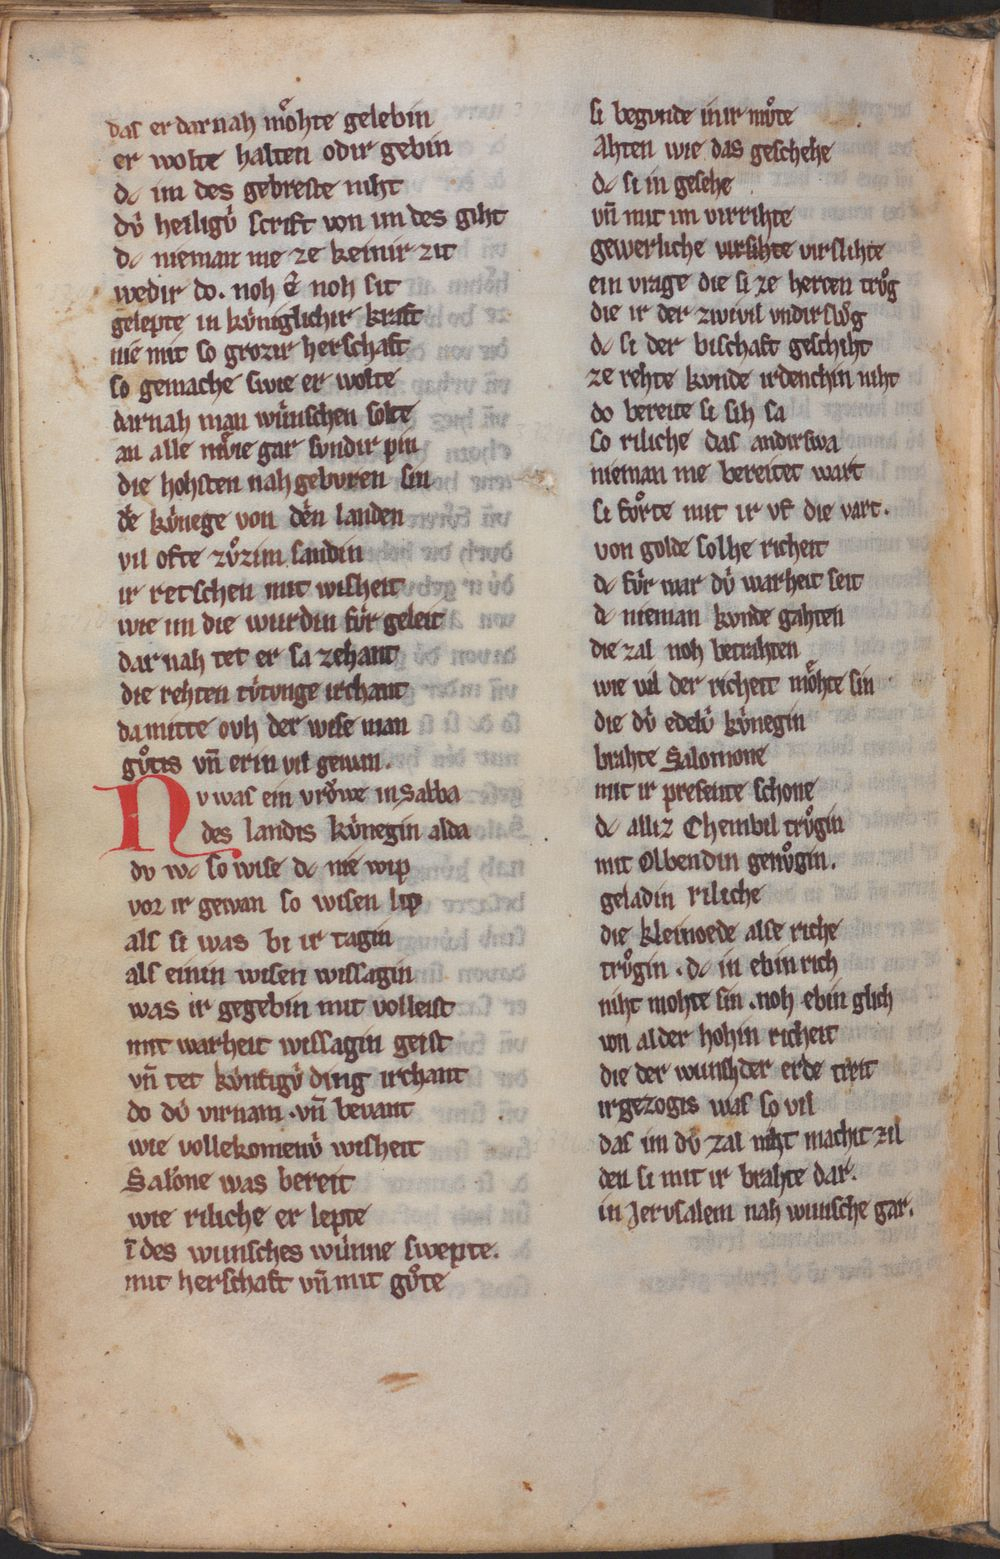 das er dar nah moͤhte gelebin
er wolte halten odir gebin
dc im des gebreste niht
dv́ heiligv́ scrift von im des giht
dc nieman nie ze keinir zit
wedir do. noh ê noh sit
gelepte in kv́niglichir kraft
nie mit so grozir herschaft
so gemache swie er wolte
darnah man wúnschen solte
an alle mv́ie gar svndir pin
die hohsten nahgebvren sin
die kv́nege von dên landen
vil ofte zuͦzim sandin
ir retschen mit wisheit
wie im die wurdin fúr geleit
dar nah tet er sa zehant
die rehten tv́tvnge irchant
da mitte ovh der wise man
guͦtis vn̄ erin vil gewan.
Nv was ein vroͮwe in Sabba
des landis kv́negin alda
dv wc so wise dc nie wip
vor ir gewan so wisen lip
als si was bi ir tagin
als einin wisen wissagin
was ir gegebin mit volleist
mit warheit wissagin geist
vn̄ tet kv́nftigv́ ding irchant
do dv́ virnam .vn̄ bevant
wie vollekomenv́ wisheit
Salo̓ne was bereit
wie riliche er lepte
ī des wunsches wúnne swepte.
mit herschaft vn̄ mit guͦte
si begvnde in ir muͦte
Ahten wie das geschehe
dc si in gesehe
vn̄ mit im virrihte
gewerliche virsihte virslihte
ein vrage die si ze herten truͦg
die ir der zwivil vndirsluͦg
dc si der bischaft geschiht
ze rehte kvnde irdenchin niht
do bereite si sih sa
so riliche das andirswa
nieman nie bereitet wart
si fuͦrte mit ir vf die vart.
von golde solhe richeit
dc fúr war dv́ warheit seit
dc nieman kvnde gahten
die zal noh betrahten
wie vil der richeit moͤhte sin
die dv́ edelv́ kv́negin
brahte Salomone
mit ir presente schone
dc alliz Chembil truͦgin
mit Olbendin genuͦgin.
geladin riliche
die kleinoede alse riche
truͦgin .dc in ebin rich
niht mohte sin .noh ebin glich
von alder hohin richeit
die der wunsh der erde treit
ir gezogis was so vil
das im dv́ zal niht macht zil
den si mit ir brahte dar.
in Jervsalem nah wunsche gar.